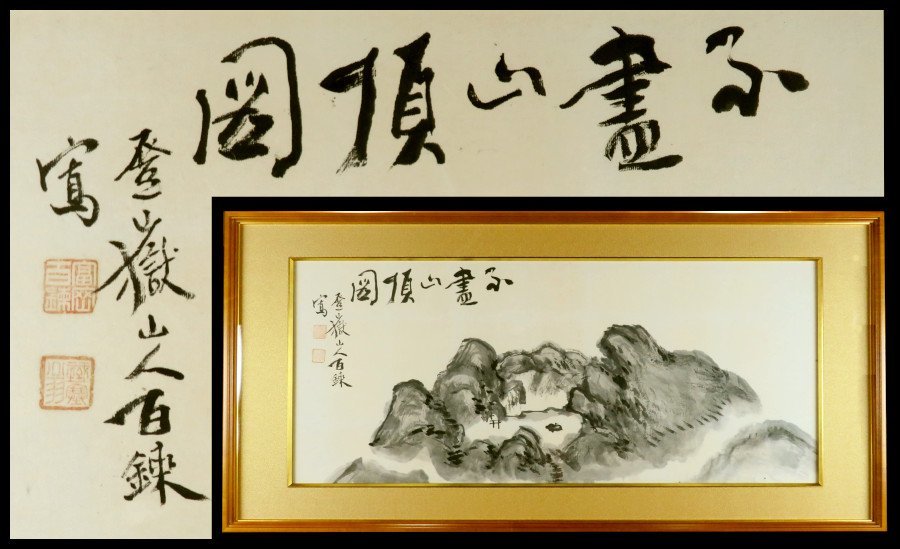 不盡山頂圖
登嶽山人百鍊
寫
不盡山頂圖
登嶽山人百鍊
寫